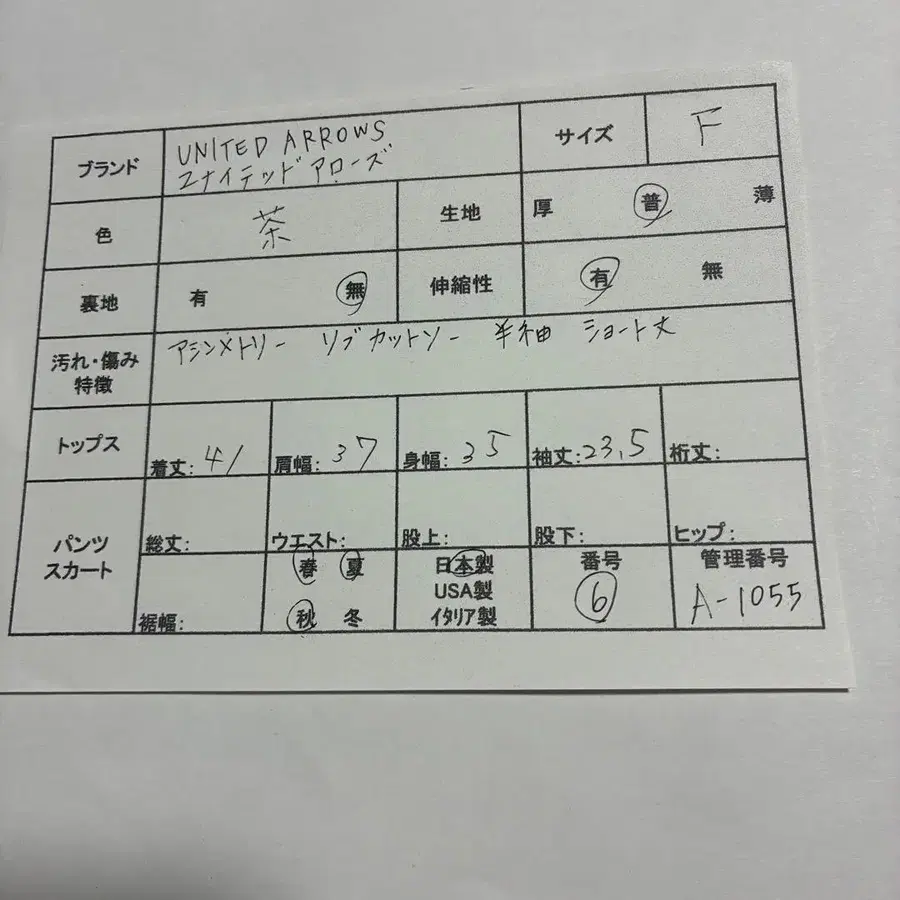 ブランド UNITED ARROWS サイズ F
ユナイテッド アローズ
色 茶 生地 厚 普 薄
裏地 有 無 伸縮性 有 無
汚れ・傷み アシンメトリー リブカットソー 半袖 ショート丈
特徴
トップス 着丈: 41 肩幅: 37 身幅: 35 袖丈: 23.5 裄丈:
パンツ 総丈: ウエスト: 股上: 股下: ヒップ:
スカート 裾幅: 春 夏 日本製 番号 管理番号
USA製 6 A-1055
秋 冬 イタリア製